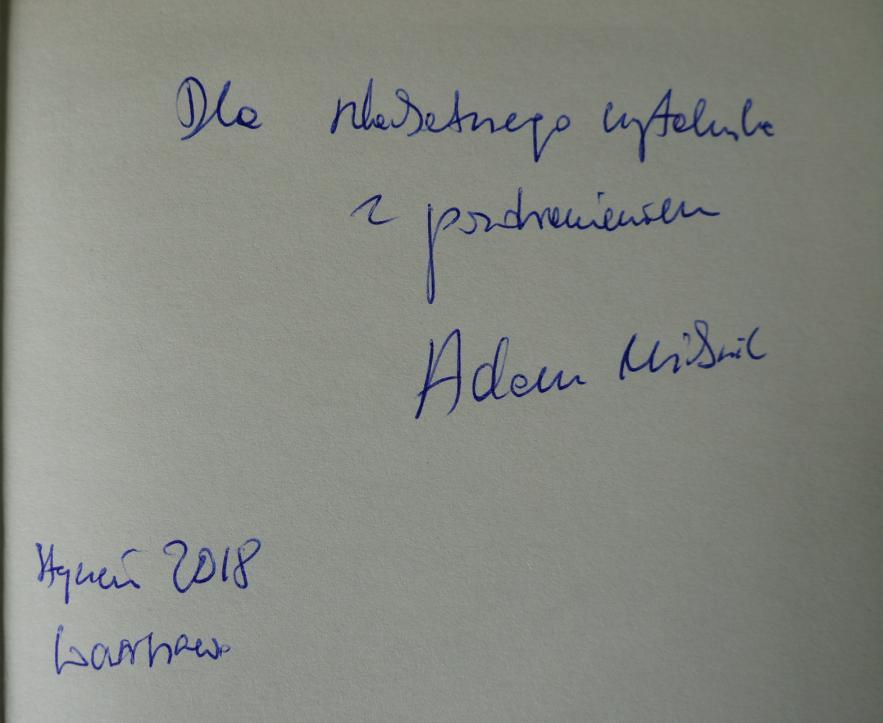 Dla szlachetnego czytelnika
z pozdrowieniem
Adam Michnik
styczeń 2018
Warszawa